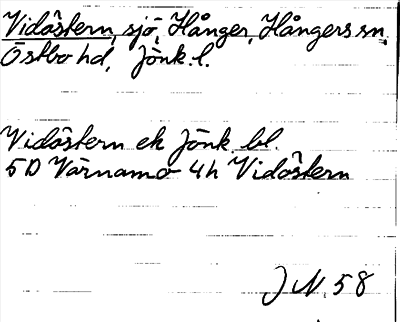 Vidöstern, sjö, Hånger, Hångers sn,
Östbo hd, Jönk. l.
Vidöstern ek Jönk. bl.
5D Värnamo 4h Vidöstern
J N. 58